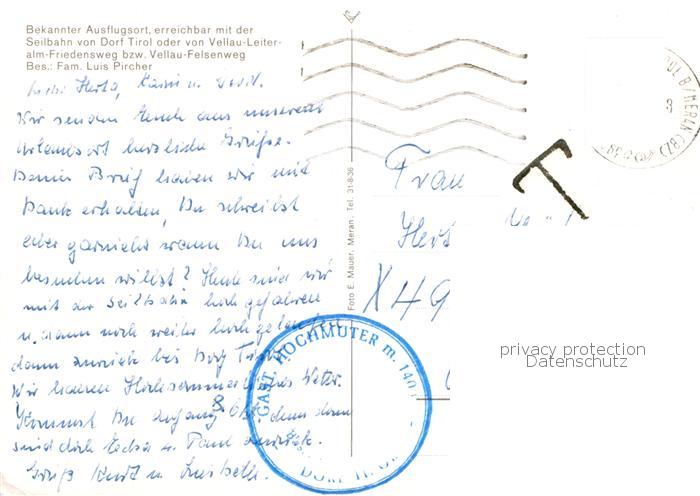 Bekannter Ausflugsort, erreichbar mit der
Seilbahn von Dorf Tirol oder von Vellau-Leiter-
alm-Friedensweg bzw. Vellau-Felsenweg
Bes.: Fam. Luis Pircher
Liebe Herta, Karin u. Gerd.
Wir senden Euch aus unserem
Urlaubsort herzliche Grüße.
Deinen Brief haben wir mit
Dank erhalten, Du schreibst
aber garnicht wann Du uns
besuchen willst? Heute sind wir
mit der Seilbahn hoch gefahren
u. dann noch weiter hoch gelaufen
dann zurück bis Dorf Tirol.
Wir haben Hochsommerliches Wetter.
Kommst Du anfang 8. denn dann
sind doch u. Paul zurück.
Grüß Kurt u. Liesbeth.
Foto E. Mauer, Meran, Tel. 31-8-36
Frau
Hert
X 49
T
GAST. HOCHMUTER m. 140
DORF
privacy protection
Datenschutz